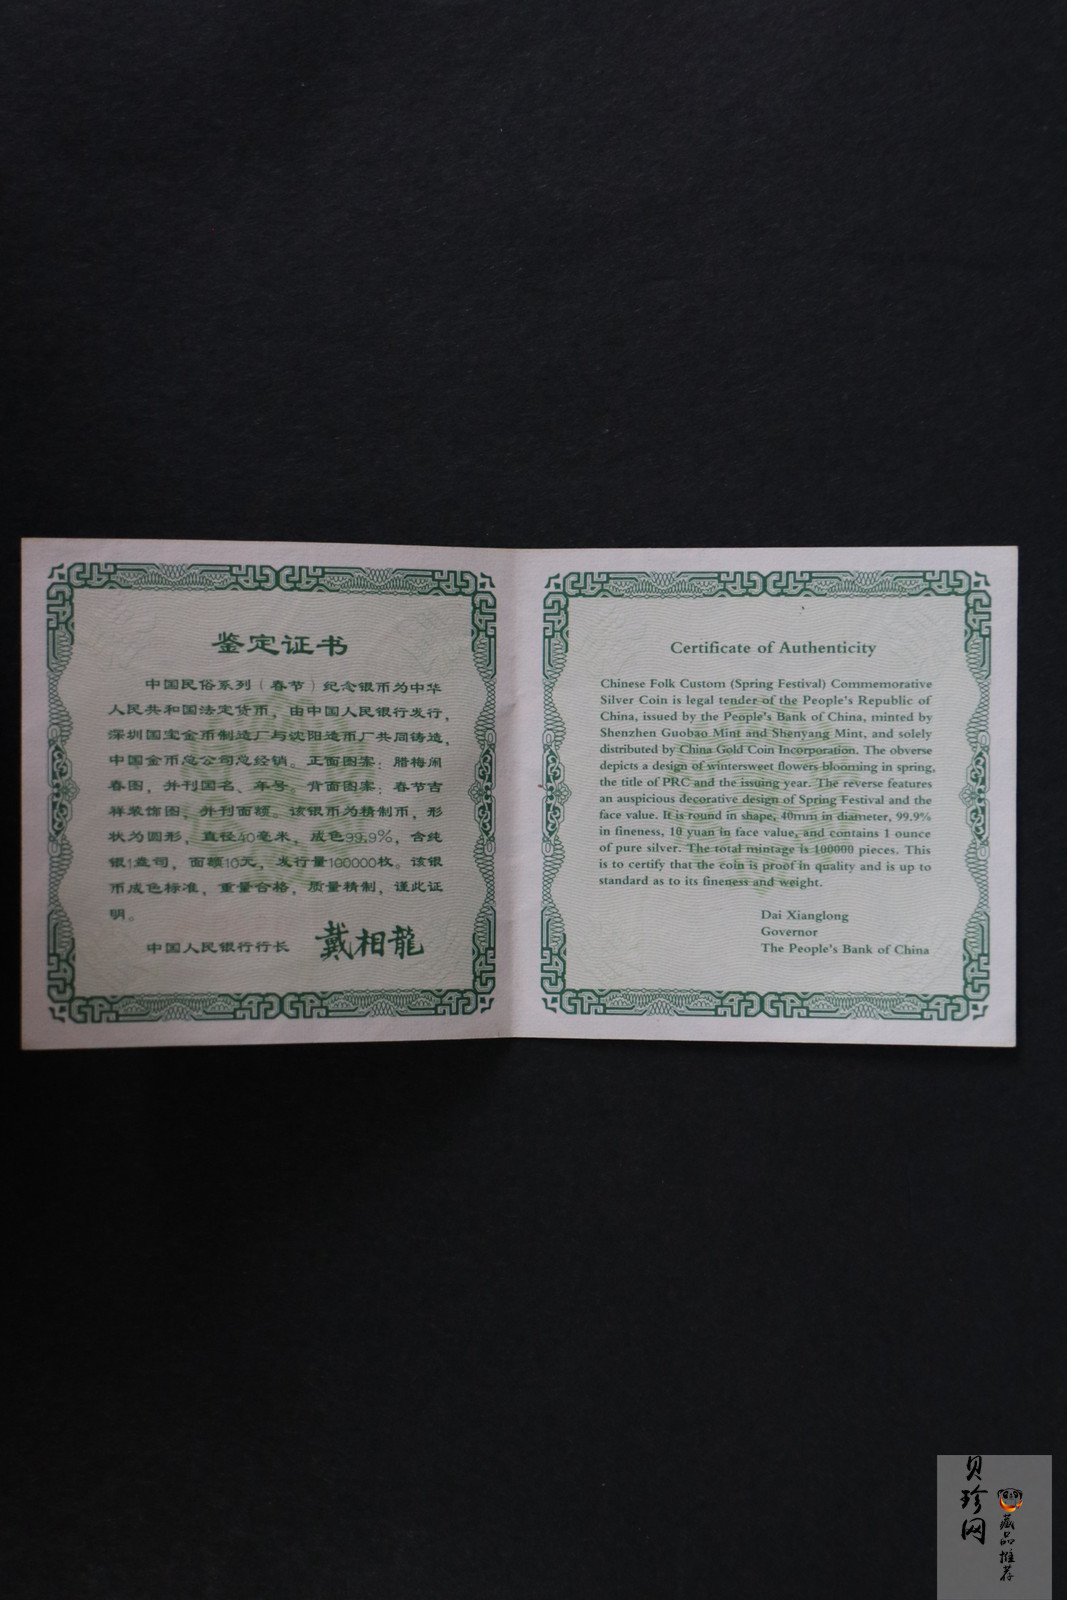 鉴定证书
中国民俗系列（春节）纪念银币为中华
人民共和国法定货币，由中国人民银行发行，
深圳国宝金币制造厂与沈阳造币厂共同铸造，
中国金币总公司总经销。正面图案：腊梅闹
春图，并刊国名、年号。背面图案：春节吉
祥装饰图，并刊面额。该银币为精制币，形
状为圆形，直径40毫米，成色99.9%，含纯
银1盎司，面额10元，发行量100000枚。该银
币成色标准，重量合格，质量精制，谨此证
明。
中国人民银行行长 戴相龍
Certificate of Authenticity
Chinese Folk Custom (Spring Festival) Commemorative
Silver Coin is legal tender of the People's Republic of
China, issued by the People's Bank of China, minted by
Shenzhen Guobao Mint and Shenyang Mint, and solely
distributed by China Gold Coin Incorporation. The obverse
depicts a design of wintersweet flowers blooming in spring,
the title of PRC and the issuing year. The reverse features
an auspicious decorative design of Spring Festival and the
face value. It is round in shape, 40mm in diameter, 99.9%
in fineness, 10 yuan in face value, and contains 1 ounce
of pure silver. The total mintage is 100000 pieces. This
is to certify that the coin is proof in quality and is up to
standard as to its fineness and weight.
Dai Xianglong
Governor
The People's Bank of China
贝珍网
藏品推荐